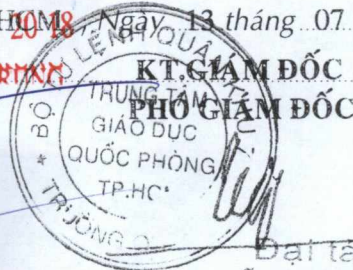 HCM, Ngày 13 tháng 07
2018
KT.GIÁM ĐỐC
PHÓ GIÁM ĐỐC
BỘ LỆNH QUÂN
TRUNG TÂM
GIÁO DỤC
QUỐC PHÒNG
TP.HC
TRƯỜNG
Đại tá